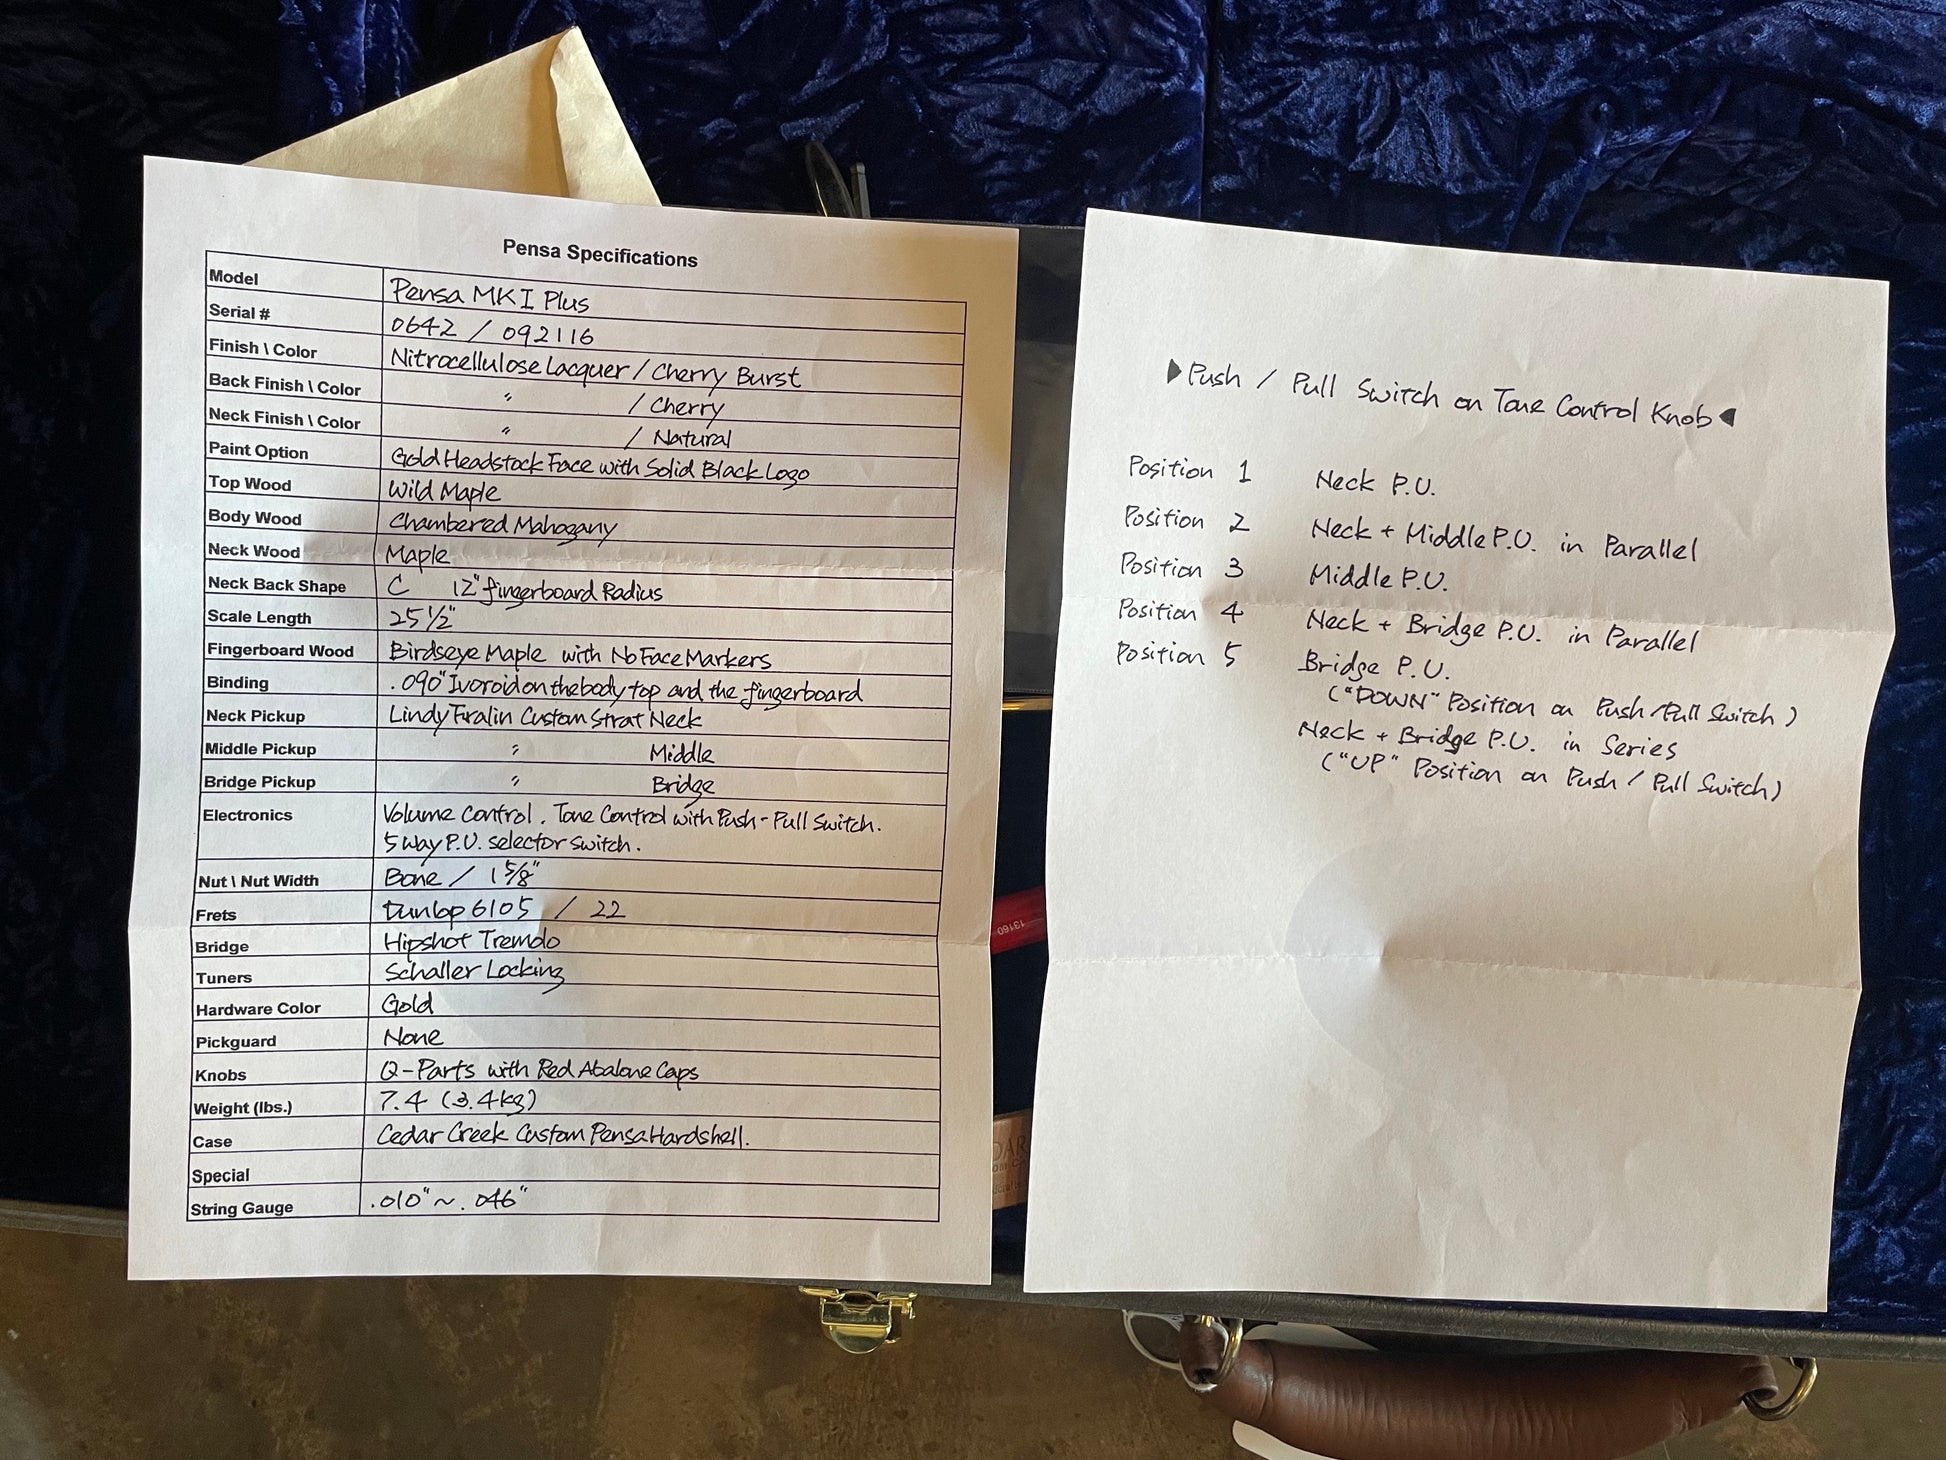 Pensa Specifications
Model Pensa MK I Plus
Serial # 0642 / 092116
Finish \ Color Nitrocellulose Lacquer / Cherry Burst
Back Finish \ Color 〃 / Cherry
Neck Finish \ Color 〃 / Natural
Paint Option Gold Headstock Face with Solid Black Logo
Top Wood Wild Maple
Body Wood Chambered Mahogany
Neck Wood Maple
Neck Back Shape C 12" fingerboard Radius
Scale Length 25 1/2"
Fingerboard Wood Birdseye Maple with No Face Markers
Binding .090" Ivoroid on the body top and the fingerboard
Neck Pickup Lindy Fralin Custom Strat Neck
Middle Pickup 〃 Middle
Bridge Pickup 〃 Bridge
Electronics Volume Control, Tone Control with Push-Pull Switch.
5 way P.U. selector switch.
Nut \ Nut Width Bone / 1 5/8"
Frets Dunlop 6105 / 22
Bridge Hipshot Tremolo
Tuners Schaller Locking
Hardware Color Gold
Pickguard None
Knobs Q-Parts with Red Abalone Caps
Weight (lbs.) 7.4 (3.4kg)
Case Cedar Creek Custom Pensa Hardshell.
Special
String Gauge .010" ~ .046"
▶Push / Pull Switch on Tone Control Knob◀
Position 1 Neck P.U.
Position 2 Neck + Middle P.U. in Parallel
Position 3 Middle P.U.
Position 4 Neck + Bridge P.U. in Parallel
Position 5 Bridge P.U.
("DOWN" Position on Push/Pull Switch)
Neck + Bridge P.U. in Series
("UP" Position on Push / Pull Switch)
13160